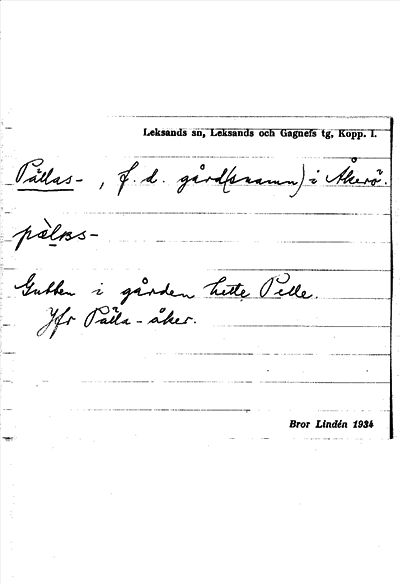 Leksands sn, Leksands och Gagnefs tg, Kopp. l.
Pällas- , f. d. gård(snamn) i Åkerö.
Gubben i gården hette Pelle.
Jfr Pälla-åker.
Bror Lindén 1934